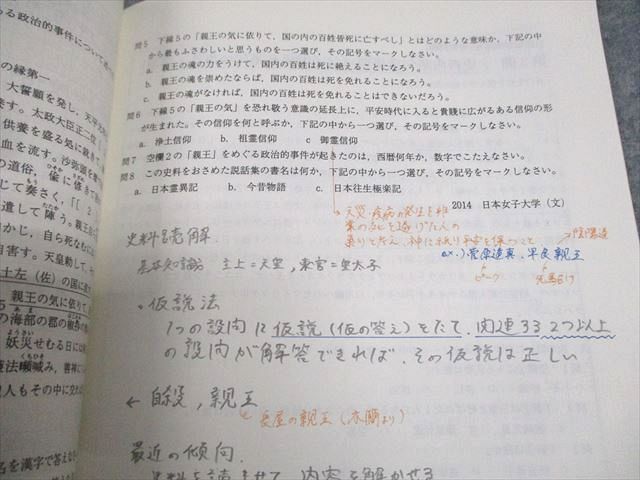 問5 下線5の「親王の気に依りて，国の内の百姓皆死に亡すべし」とはどのような意味か，下記の中
から最もふさわしいと思うものを一つ選び，その記号をマークしなさい。
a. 親王の魂の力をうけて，国内の百姓は死に絶えることになろう。
b. 親王の魂を崇めたならば，国内の百姓は死を免れることになろう。
c. 親王の魂がなければ，国内の百姓は死を免れることはできないだろう。
問6 下線5の「親王の気」を恐れ敬う意識の延長上に，平安時代に入ると貴賤に広がるある信仰の形
が生まれた。その信仰を何と呼ぶか，下記の中から一つ選び，その記号をマークしなさい。
a. 浄土信仰 b. 祖霊信仰 c 御霊信仰
問7 空欄2の「親王」をめぐる政治的事件が起きたのは，西暦何年か，数字でこたえなさい。
問8 この史料をおさめた説話集の書名は何か，下記の中から一つ選び，その記号をマークしなさい。
a. 日本霊異記 b. 今昔物語 c. 日本往生極楽記
2014 日本女子大学（文）
天災・疫病の発生を非
業の死を遂げた人の
ex.）菅原道真，早良親王
史料読解．
基本知識 主上=天皇，東宮=皇太子
・仮説法
1つの設問に仮説（仮の答え）をたて，関連する2つ以上
の設問が解答できれば，その仮説は正しい
← 自殺，親王
長屋の親王（木簡より）
最近の傾向．
史料を読ませて，内容を解かせる
る政治的事件について
の縁第一
大誓願を発し，天平元
す。太政大臣正二位
供養を盛る処に就きて
血を流す。沙弥頭を
の道俗，偸に傍きて
じて奏さく，「〔2
遣して陣う。親王自
かじ，自ら死なむに
自害す。天皇勅して，
土左（佐）の国に流す
親王の気に依りて，
の海部の郡の
妖災せむる日には
憲法嚬嘁み，善神に
人もその中に交れ
名を漢字で答え